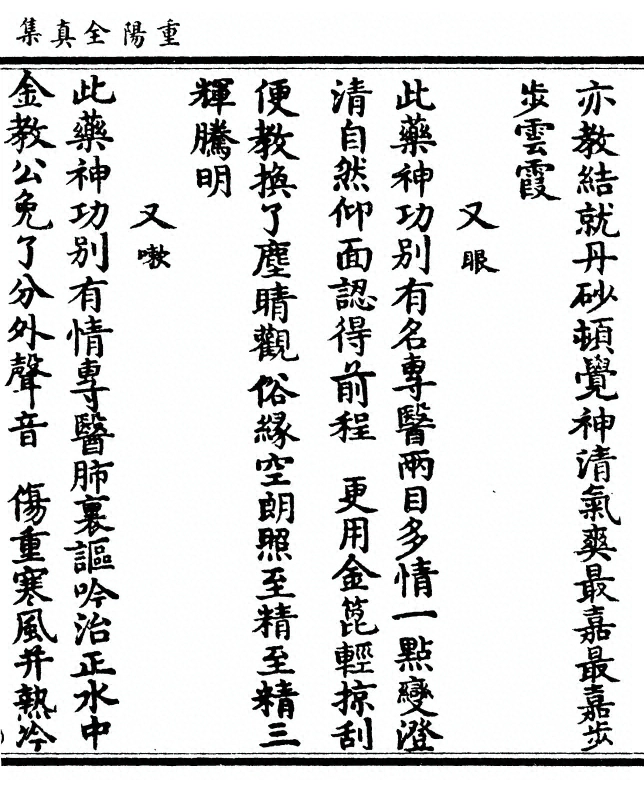 重陽全真集
亦教結就丹砂頓覺神清氣爽最嘉最嘉步
步雲霞
又眼
此藥神功別有名專醫兩目多情一點變澄
清自然仰面認得前程　更用金篦輕掠刮
便教換了塵睛觀俗緣空朗照至精至精三
輝騰明
又嗽
此藥神功別有情專醫肺裏謳吟治正水中
金教公免了分外聲音　傷重寒風并熱冷